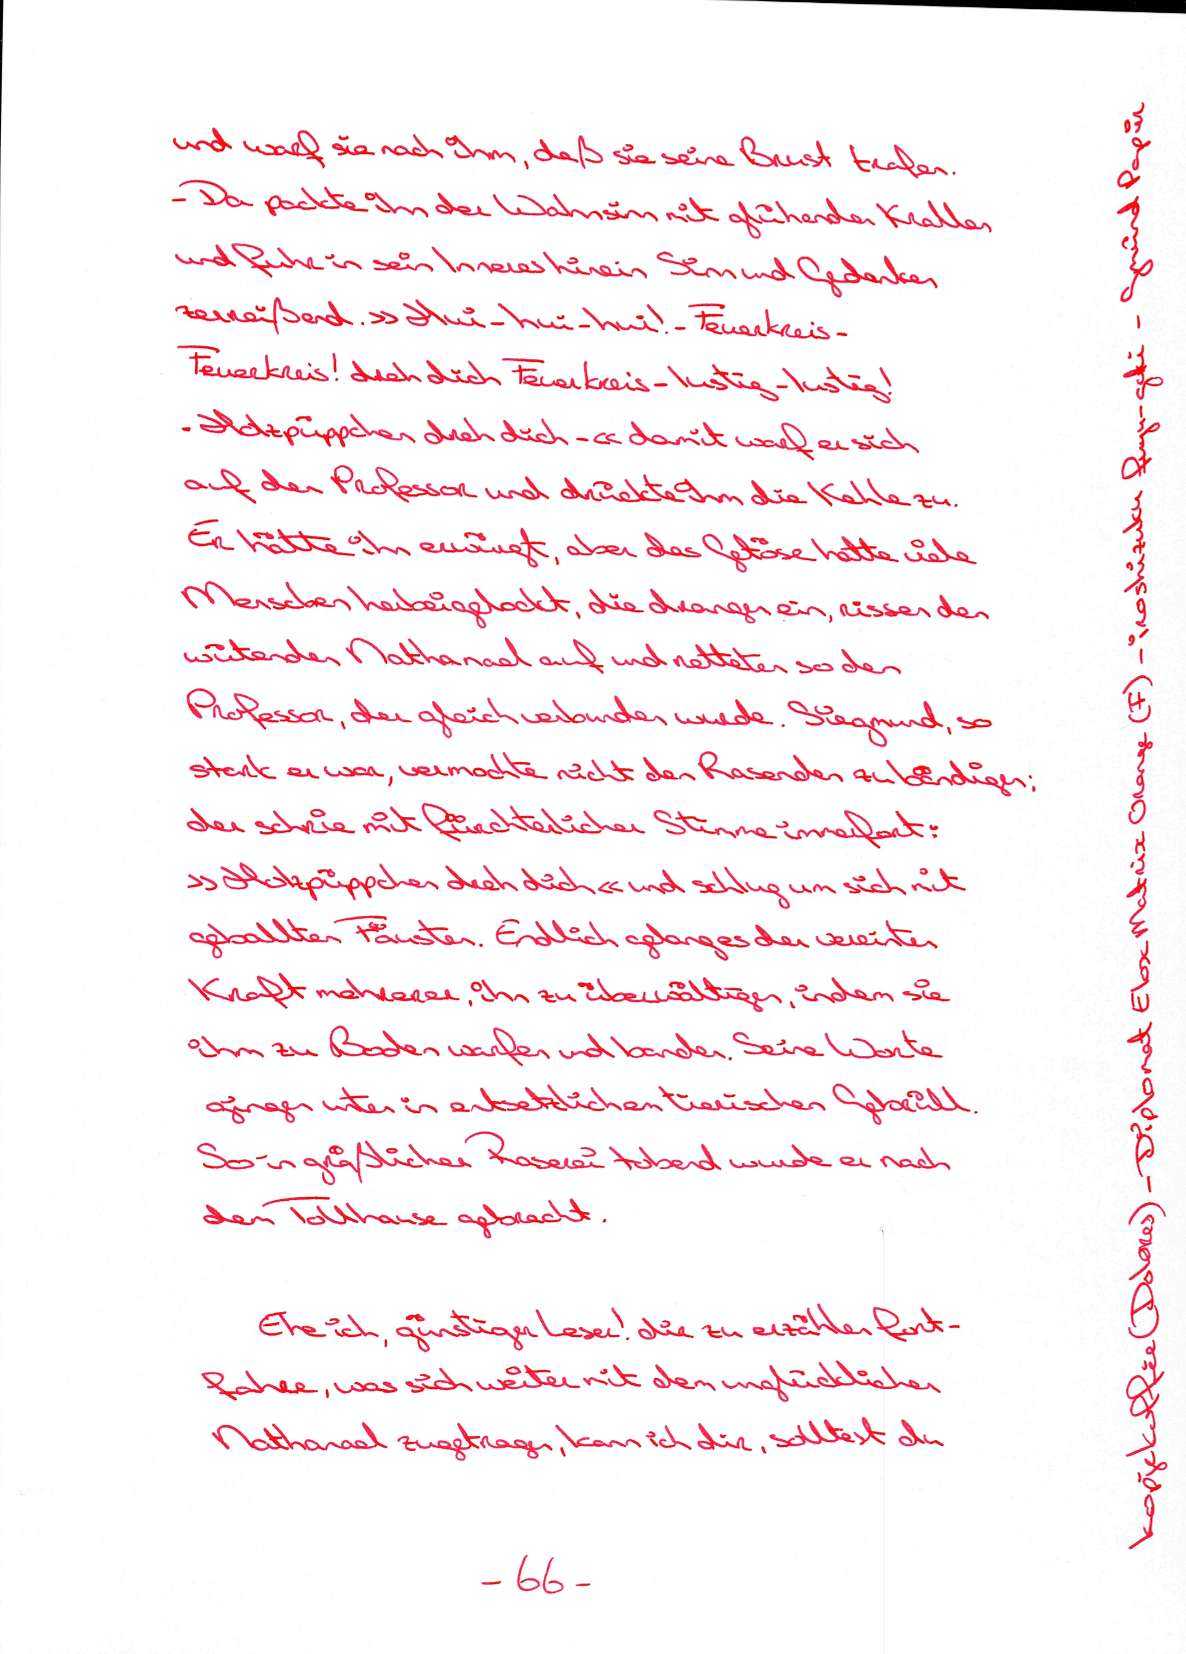 und warf sie nach ihm, daß sie seine Brust trafen.
- Da packte ihn der Wahnsinn mit glühenden Krallen
und fuhr in sein Inneres hinein Sinn und Gedanken
zerreißend. »Hui-hui-hui! - Feuerkreis-
Feuerkreis! dreh dich Feuerkreis-lustig-lustig!
- Holzpüppchen dreh dich -« damit warf er sich
auf den Professor und drückte ihm die Kehle zu.
Er hätte ihn erwürgt, aber das Getöse hatte viele
Menschen herbeigelockt, die drangen ein, rissen den
wütenden Nathanael auf und retteten so den
Professor, der gleich verbunden wurde. Siegmund, so
stark er war, vermochte nicht den Rasenden zu bändigen;
der schrie mit fürchterlicher Stimme immerfort:
»Holzpüppchen dreh dich« und schlug um sich mit
geballten Fäusten. Endlich gelang es der vereinten
Kraft mehrerer, ihn zu überwältigen, indem sie
ihn zu Boden warfen und banden. Seine Worte
gingen unter in entsetzlichen tierischen Gebrüll.
So in gräßlicher Raserei tobend wurde er nach
dem Tollhause gebracht.
Ehe ich, günstiger Leser! dir zu erzählen fort-
fahre, was sich weiter mit dem unglücklichen
Nathanael zugetragen, kann ich dir, solltest du
- 66 -
kopi kaffee (Dolores) - Diplomat Elox Matrix Orange (F) - iroshizuku fuyu-gaki - Gmund Papier